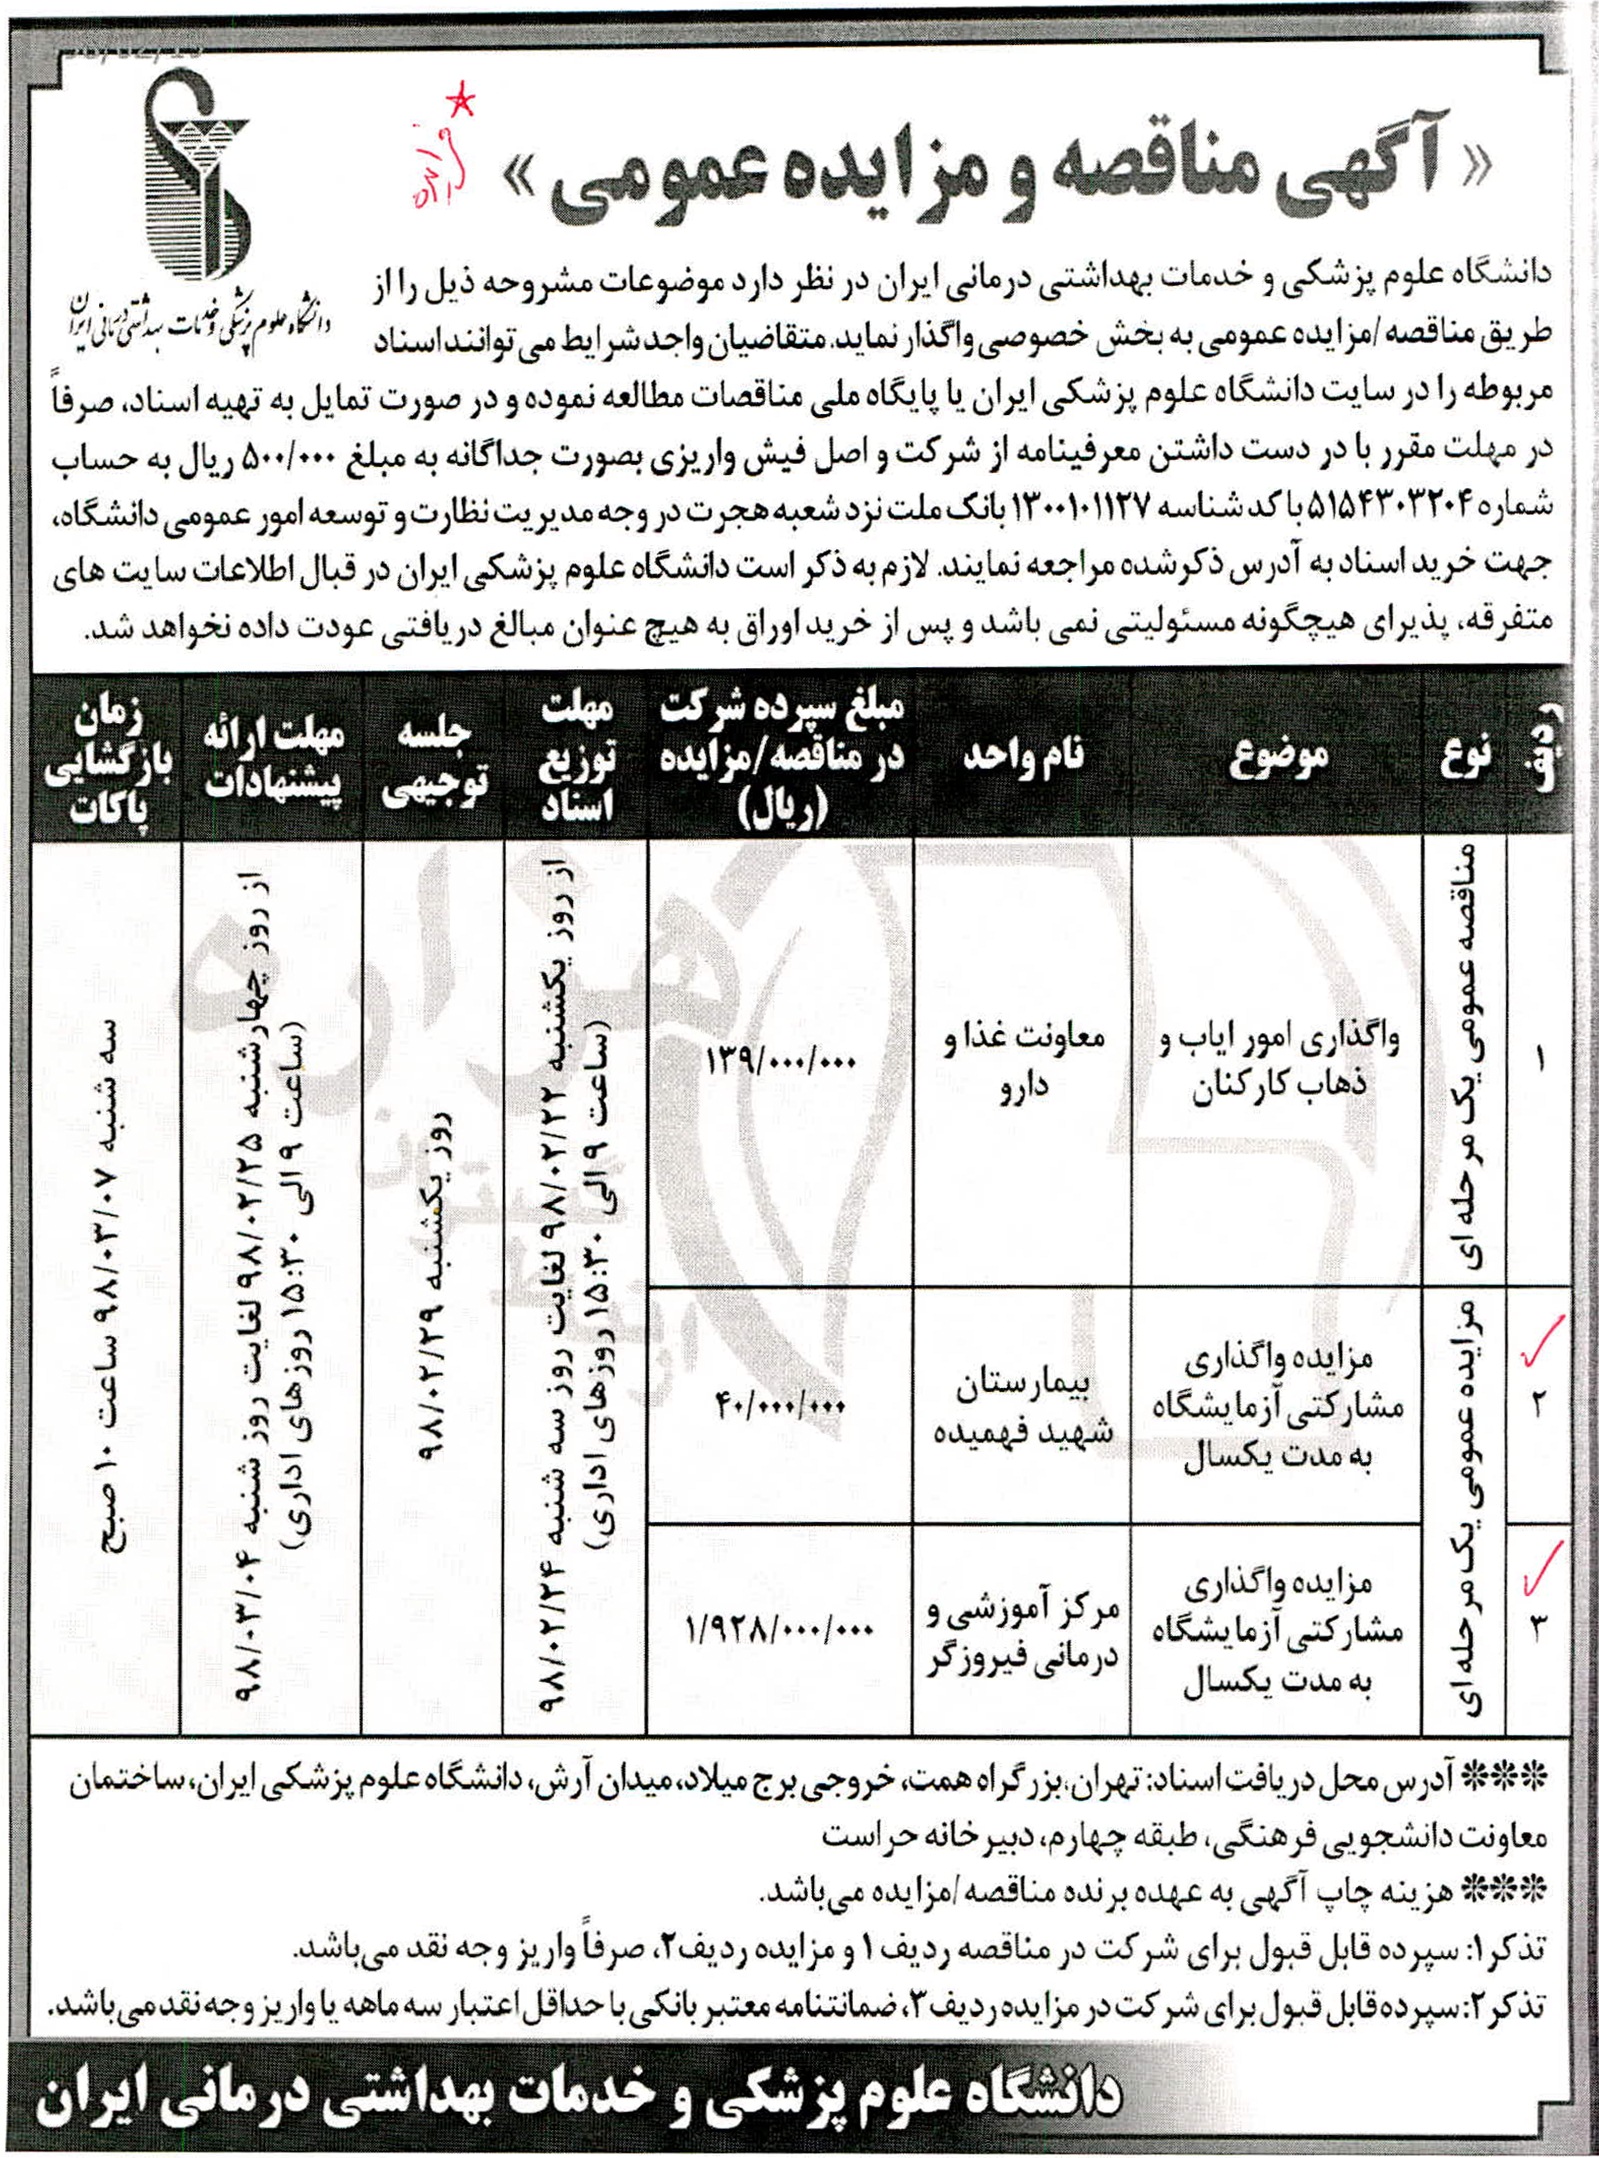 « آگهی مناقصه و مزایده عمومی »
دانشگاه علوم پزشکی و خدمات بهداشتی درمانی ایران
دانشگاه علوم پزشکی و خدمات بهداشتی درمانی ایران در نظر دارد موضوعات مشروحه ذیل را از
طریق مناقصه /مزایده عمومی به بخش خصوصی واگذار نماید. متقاضیان واجد شرایط می توانند اسناد
مربوطه را در سایت دانشگاه علوم پزشکی ایران یا پایگاه ملی مناقصات مطالعه نموده و در صورت تمایل به تهیه اسناد، صرفاً
در مهلت مقرر با در دست داشتن معرفینامه از شرکت و اصل فیش واریزی بصورت جداگانه به مبلغ ۵۰۰/۰۰۰ ریال به حساب
شماره ۵۱۵۴۳۰۳۲۰۴ با کد شناسه ۱۳۰۰۱۰۱۱۲۷ بانک ملت نزد شعبه هجرت در وجه مدیریت نظارت و توسعه امور عمومی دانشگاه،
جهت خرید اسناد به آدرس ذکر شده مراجعه نمایند. لازم به ذکر است دانشگاه علوم پزشکی ایران در قبال اطلاعات سایت های
متفرقه، پذیرای هیچگونه مسئولیتی نمی باشد و پس از خرید اوراق به هیچ عنوان مبالغ دریافتی عودت داده نخواهد شد.
ردیف
نوع
موضوع
نام واحد
مبلغ سپرده شرکت
در مناقصه/مزایده
(ریال)
مهلت
توزیع
اسناد
جلسه
توجیهی
مهلت ارائه
پیشنهادات
زمان
بازگشایی
پاکات
۱
مناقصه عمومی یک مرحله ای
واگذاری امور ایاب و
ذهاب کارکنان
معاونت غذا و
دارو
۱۳۹/۰۰۰/۰۰۰
از روز یکشنبه ۹۸/۰۲/۲۲ لغایت روز سه شنبه ۹۸/۰۲/۲۴
(ساعت ۹ الی ۱۵:۳۰ روزهای اداری)
روز یکشنبه ۹۸/۰۲/۲۹
از روز چهارشنبه ۹۸/۰۲/۲۵ لغایت روز شنبه ۹۸/۰۳/۰۴
(ساعت ۹ الی ۱۵:۳۰ روزهای اداری)
سه شنبه ۹۸/۰۳/۰۷ ساعت ۱۰ صبح
۲
مزایده عمومی یک مرحله ای
مزایده واگذاری
مشارکتی آزمایشگاه
به مدت یکسال
بیمارستان
شهید فهمیده
۴۰/۰۰۰/۰۰۰
۳
مزایده واگذاری
مشارکتی آزمایشگاه
به مدت یکسال
مرکز آموزشی و
درمانی فیروزگر
۱/۹۲۸/۰۰۰/۰۰۰
*** آدرس محل دریافت اسناد: تهران، بزرگراه همت، خروجی برج میلاد، میدان آرش، دانشگاه علوم پزشکی ایران، ساختمان
معاونت دانشجویی فرهنگی، طبقه چهارم، دبیرخانه حراست
*** هزینه چاپ آگهی به عهده برنده مناقصه /مزایده می‌باشد.
تذکر۱: سپرده قابل قبول برای شرکت در مناقصه ردیف ۱ و مزایده ردیف۲، صرفاً واریز وجه نقد می‌باشد.
تذکر۲: سپرده قابل قبول برای شرکت در مزایده ردیف ۳، ضمانتنامه معتبر بانکی با حداقل اعتبار سه ماهه یا واریز وجه نقد می‌باشد.
دانشگاه علوم پزشکی و خدمات بهداشتی درمانی ایران